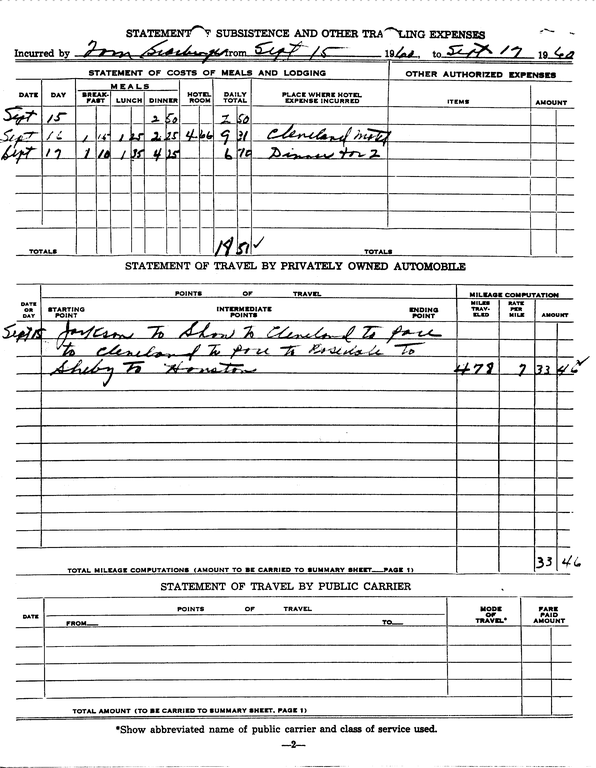 STATEMENT OF SUBSISTENCE AND OTHER TRA LING EXPENSES
Incurred by Tom from Sept 15 1960, to Sept 17 1960
STATEMENT OF COSTS OF MEALS AND LODGING OTHER AUTHORIZED EXPENSES
MEALS
DATE DAY BREAK-FAST LUNCH DINNER HOTEL ROOM DAILY TOTAL PLACE WHERE HOTEL EXPENSE INCURRED ITEMS AMOUNT
Sept 15 2 50 2 50
Sept 16 1 15 1 25 2 25 4 66 9 31 Cleveland Motel
Sept 17 1 10 1 35 4 25 6 70 Dinner for 2
TOTALS 18 51 ✓ TOTALS
STATEMENT OF TRAVEL BY PRIVATELY OWNED AUTOMOBILE
POINTS OF TRAVEL MILEAGE COMPUTATION
DATE OR DAY STARTING POINT INTERMEDIATE POINTS ENDING POINT MILES TRAV-ELED RATE PER MILE AMOUNT
Sept 15 Jackson to Shaw to Cleveland to Pace
to Cleveland to Pace to Rosedale to
Shelby to Houston 478 7 33 46 ✓
TOTAL MILEAGE COMPUTATIONS (AMOUNT TO BE CARRIED TO SUMMARY SHEET—PAGE 1) 33 46
STATEMENT OF TRAVEL BY PUBLIC CARRIER
DATE POINTS OF TRAVEL MODE OF TRAVEL* FARE PAID AMOUNT
FROM— TO—
TOTAL AMOUNT (TO BE CARRIED TO SUMMARY SHEET, PAGE 1)
*Show abbreviated name of public carrier and class of service used.
—2—